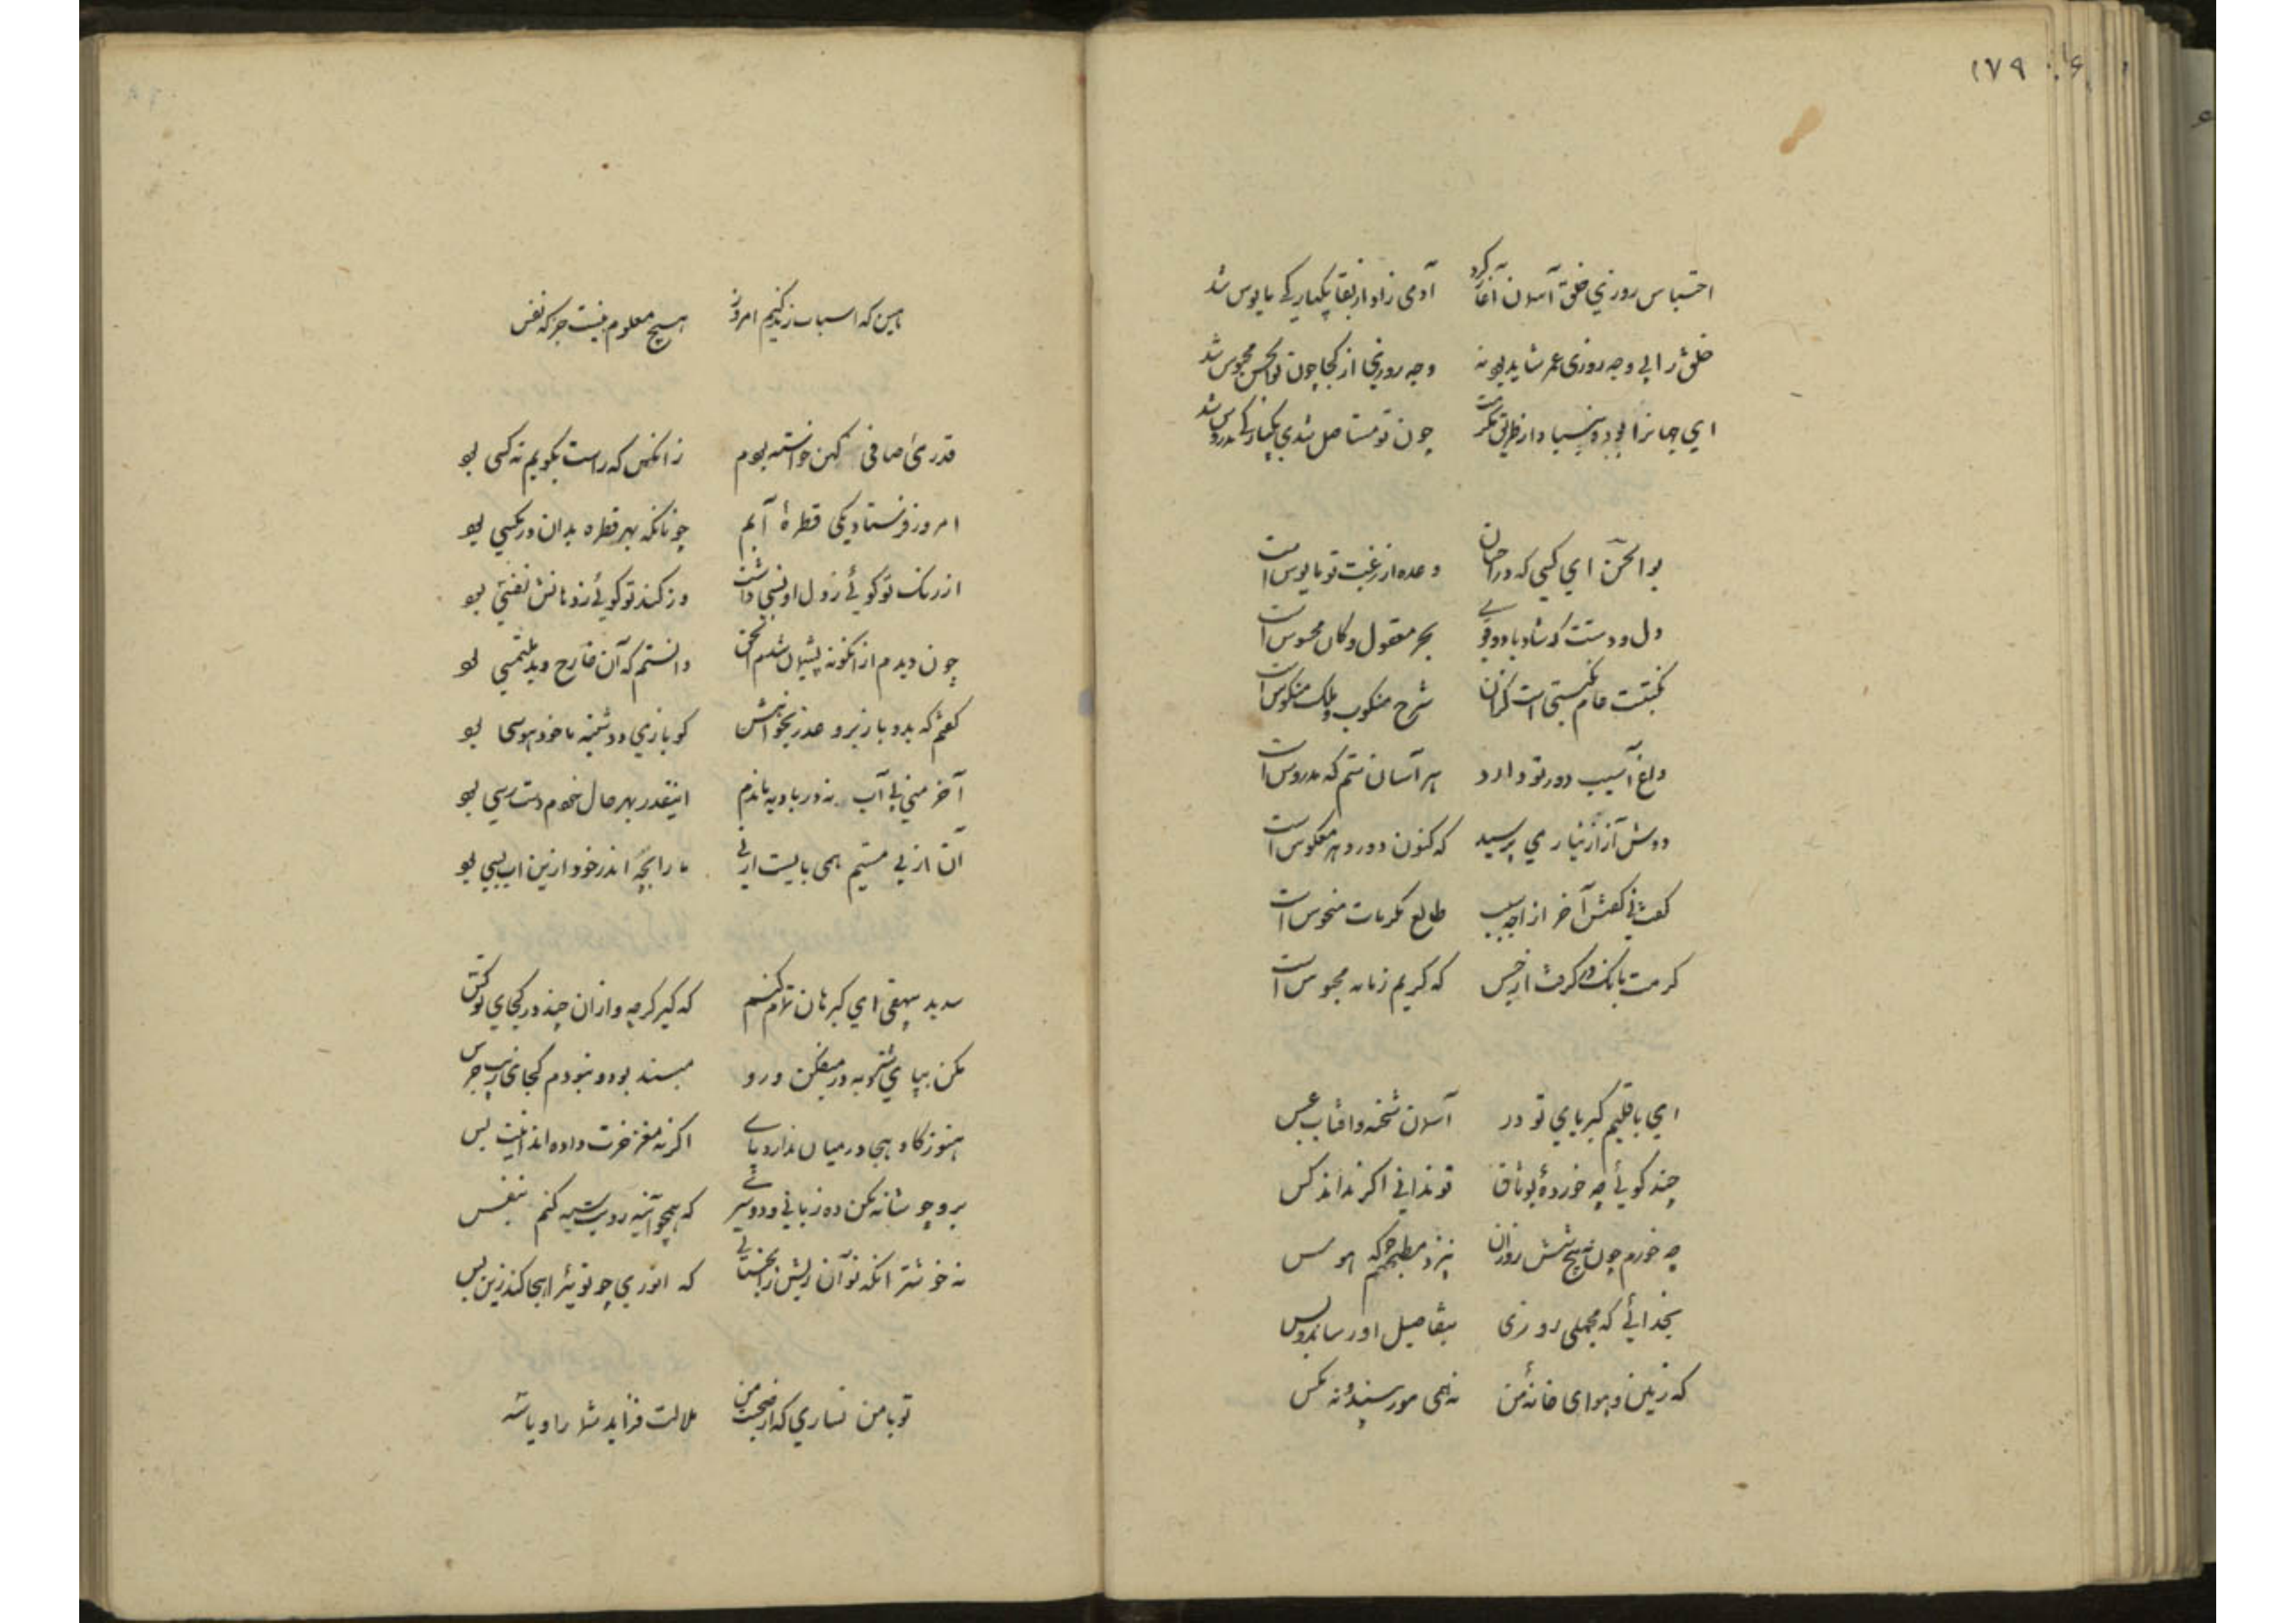 ۱۷۹
احتباس روزی خلق آسمان آغاز کرد آدمی زاد از بقا یکبارگی مایوس شد
خلق را بی وجه روزی عمر شاید بود نه وجه روزی از کجا چون بوالحسن محبوس شد
ای جهانرا بوده بنیاد از طریق مکرمت چون تو مستاصل شدی یکبارگی مدروس شد
بوالحسن ای کسی که در احسان وعده از رغبت تو مایوس است
دل و دستت که شاد بادو قوی بحر معقول و کان محسوس است
نکبتت عام نکبتی است کزان شرح منکوب و ملک منکوس است
داغ آسیب دور تو دارد هر آسان ستم که مدروس است
دوش آز از نیاز می پرسید که کنون دور دهر معکوس است
گفت نی گفتش آخر از چه سبب طالع مکرمات منحوس است
کرمت بانگ در گرفت از حبس که کریم زمانه محبوس است
ای باقلیم کبریای تو در آسمان شحنه وافتاب عسس
چند گوئی چه خوردهٔ بوثاق تو ندانی اگر نداند کس
چه خورم چون بپنج شش روزان نپزد مطبخم که هوس
بخدائی که مجملی روزی بتفاصیل او رساند و بس
که زمین و هوای خانهٔ من نه همی مور بیند و نه مگس
هین که اسباب زندگیم امروز هیچ معلوم نیست جز که نفس
قدری می صافی کهن خواسته بودم زانکس که راست بگویم نه کسی بود
امروز فرستاد یکی قطرهٔ آبم چونانکه بهر قطره بدان در مگسی بود
از رنگ تو گوئی ز دل او نسبی داشت وز گند تو گوئی زدهانش نفسی بود
چون دیدم از انگونه پشیمان شدم الحق دانستم که آن قارح و بد ملتمسی بود
گفتم که بدو باز برو عذر بخواهش کو بازی دوشینه ما خود هوسی بود
آخر منی بی آب نه در بادیه ماندم اینقدر بهر حال خودم دست رسی بود
آن از پی مستیم همی بایست ارنی ما را بچه اندر خود ازین اب بسی بود
سدید بیهقی ای کیر نان تمام کنم که گیر گرچه وازان چند در کجای تو کش
مکن بپای شتربه در میفکن و رو مبند بود و نبودم کجای خر بجرس
هنوز گاو هجا در میان ندارد پای اگر نه مغز خرت داده اند اینت بس
برو چو شانه مکن ده زبانی و دو سری که همچو آینه رویت سیه کنم بنفس
نه خوشتر انکه تو آن ریش را بجنبانی که انوری چو توئی را هجا کند زین بس
تو با من نسازی که از صحبت من ملالت فزاید شما را و یاشه